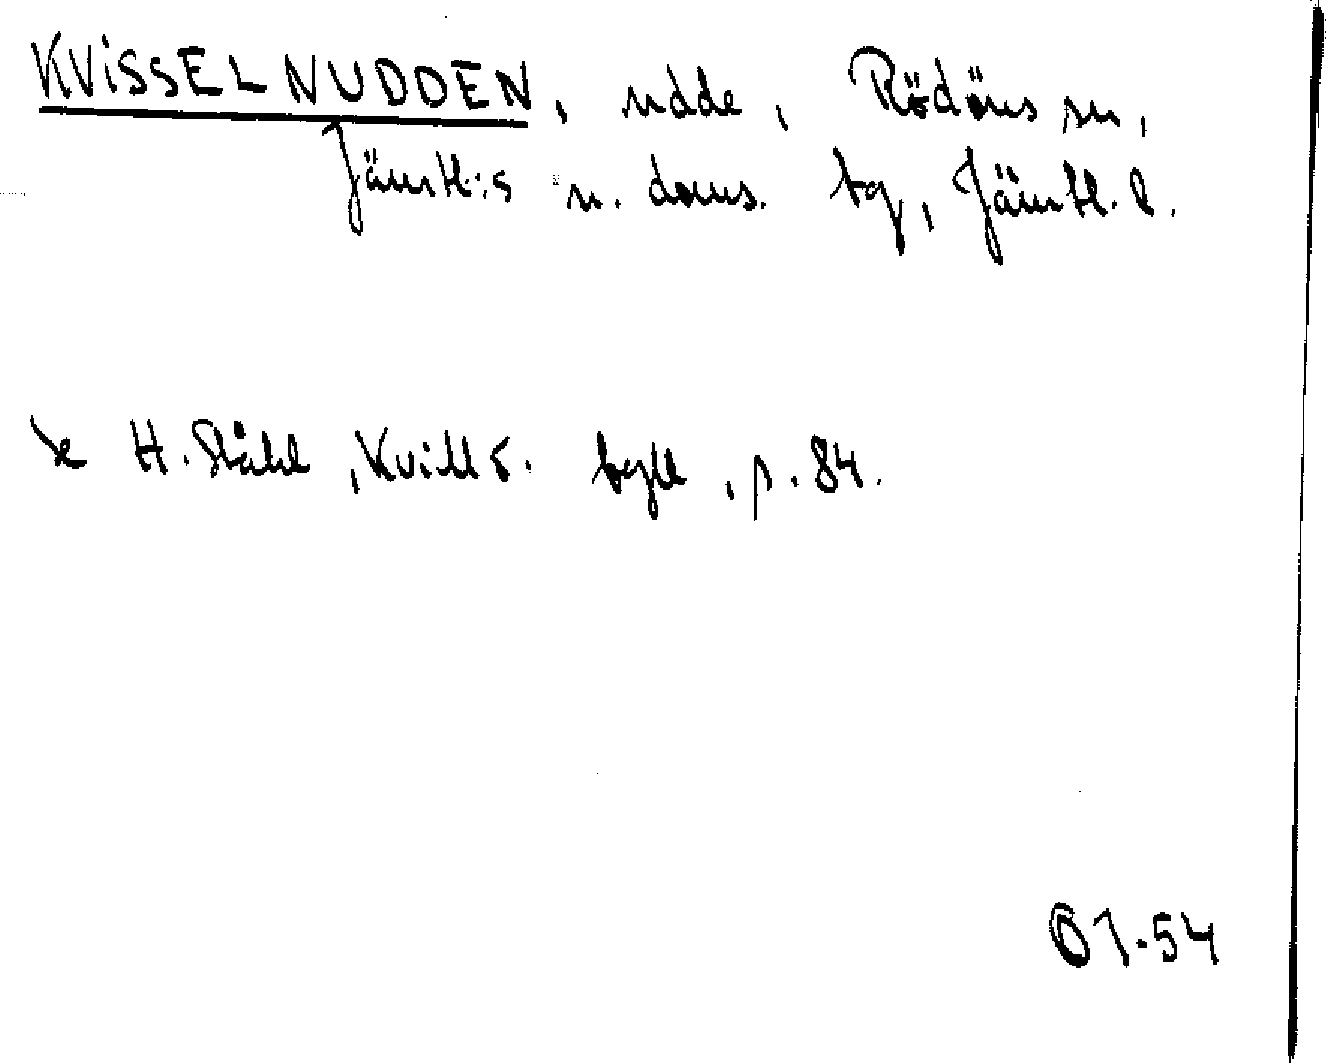 KVISSELNUDDEN, udde, Rödöns sn,
Jämtl:s n. doms. tg, Jämtl. l.
se H. Ståhl, Kvill o. tyll, p. 84.
OJ.54